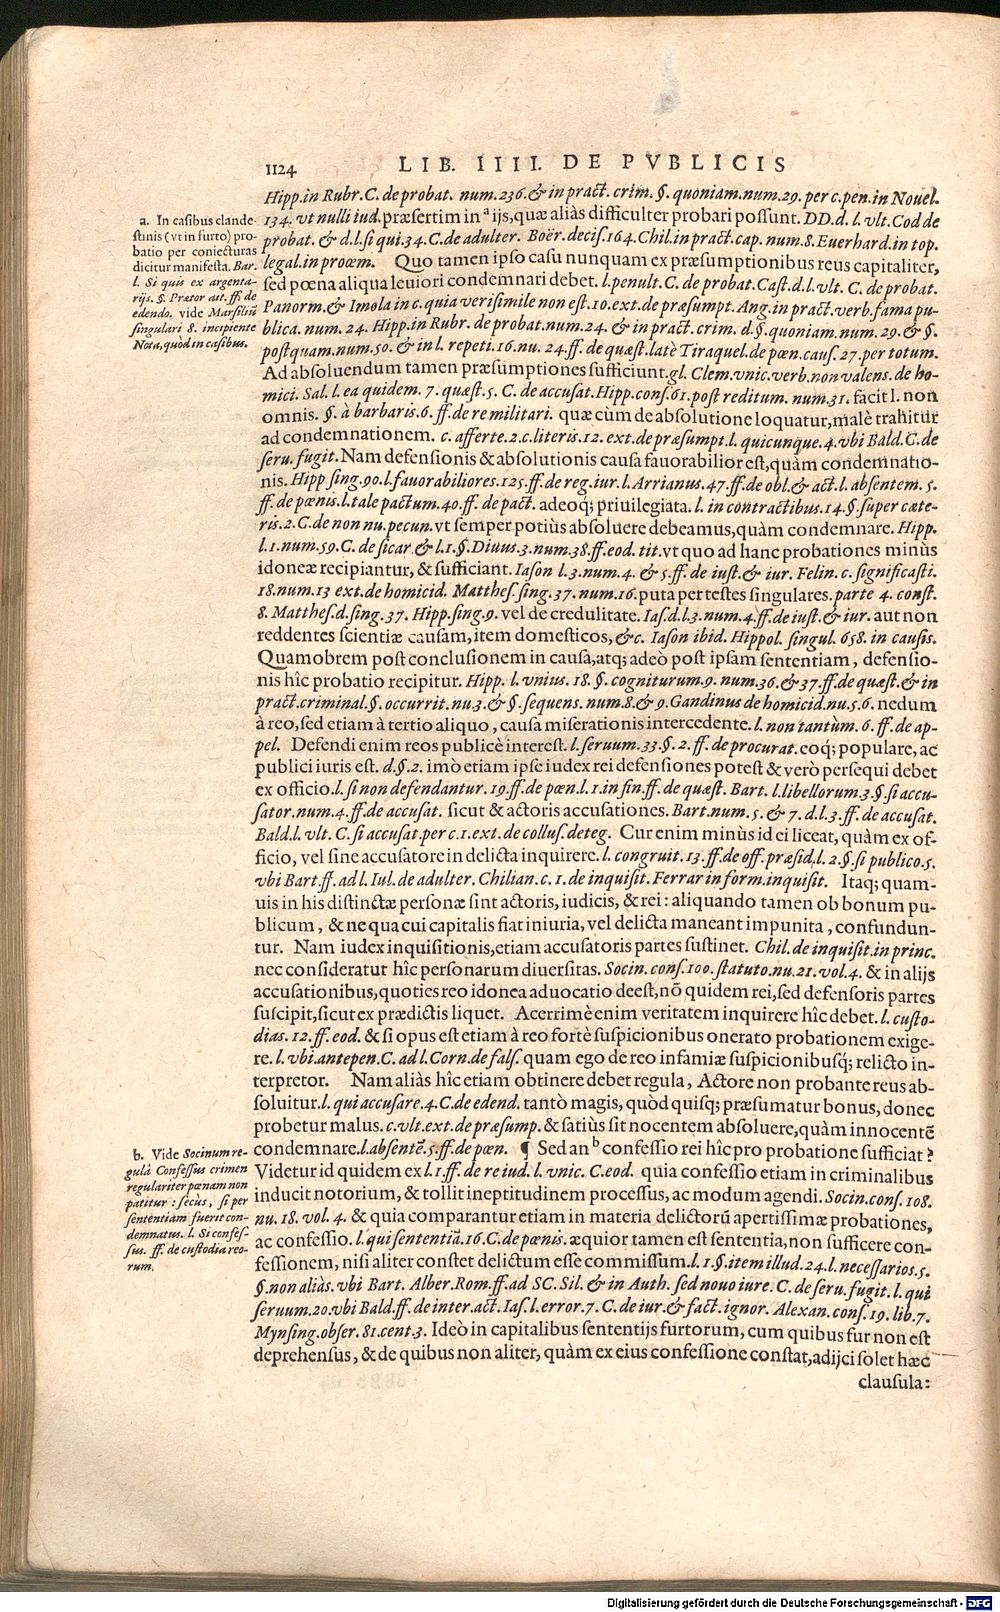 1124 LIB. IIII. DE PVBLICIS
Hipp.in Rubr.C. de probat. num.236.& in pract. crim. §. quoniam.num.29. per c.pen.in Nouel.
134. vt nulli iud. præsertim in ᵃ ijs, quæ aliàs difficulter probari possunt. DD.d. l. vlt. Cod de
probat. & d.l.si qui.34.C.de adulter. Boër.decis.164.Chil.in pract.cap. num.8.Euerhard.in top.
legal.in proœm. Quo tamen ipso casu nunquam ex præsumptionibus reus capitaliter,
sed pœna aliqua leuiori condemnari debet. l.penult.C. de probat. Cast.d.l.vlt. C. de probat.
Panorm.& Imola in c.quia verisimile non est.10.ext.de præsumpt. Ang.in pract.verb.fama pu-
blica. num. 24. Hipp.in Rubr. de probat.num.24. & in pract. crim. d.§.quoniam.num.29.& §.
postquam.num.50. & in l. repeti.16.nu. 24.ff. de quæst. latè Tiraquel.de pœn.caus.27.per totum.
Ad absoluendum tamen præsumptiones sufficiunt.gl. Clem.vnic.verb.non valens.de ho-
mici. Sal. l. ea quidem. 7. quæst.5. C. de accusat.Hipp.cons.61.post reditum. num.31. facit l. non
omnis. §. à barbaris.6. ff.de re militari. quæ cùm de absolutione loquatur, malè trahitur
ad condemnationem. c. afferte.2.c.literis.12. ext.de præsumpt.l. quicunque.4.vbi Bald.C.de
seru. fugit. Nam defensionis & absolutionis causa fauorabilior est, quàm condemnatio-
nis. Hipp sing.90.l.fauorabiliores.125.ff.de reg.iur.l.Arrianus.47.ff.de obl.& act.l.absentem. 5.
ff.de pœnis.l.tale pactum.40.ff. de pact. adeoq; priuilegiata. l. in contractibus.14.§.super cæte-
ris.2. C.de non nu.pecun. vt semper potiùs absoluere debeamus, quàm condemnare. Hipp.
l.1.num.59.C. de sicar & l.1.§.Diuus.3.num.38.ff.eod. tit. vt quo ad hanc probationes minùs
idoneæ recipiantur, & sufficiant. Iason l.3.num.4. & 5.ff.de iust.& iur. Felin. c. significasti.
18.num.13 ext.de homicid. Matthes.sing.37.num.16. puta per testes singulares. parte 4. const.
8. Matthes.d.sing.37. Hipp.sing.9. vel de credulitate. Ias.d.l.3.num.4.ff.de iust.& iur. aut non
reddentes scientiæ causam, item domesticos, &c. Iason ibid. Hippol. singul. 658. in causis.
Quamobrem post conclusionem in causa, atq; adeò post ipsam sententiam, defensio-
nis hîc probatio recipitur. Hipp. l. vnius. 18. §. cogniturum.9. num.36.& 37.ff.de quæst.& in
pract.criminal.§. occurrit. nu.3.& §. sequens. num.8.& 9.Gandinus de homicid.nu.5.6. nedum
à reo, sed etiam à tertio aliquo, causa miserationis intercedente. l. non tantùm. 6. ff. de ap-
pel. Defendi enim reos publicè interest. l.seruum.33.§.2. ff. de procurat. eoq; populare, ac
publici iuris est. d.§.2. imò etiam ipse iudex rei defensiones potest & verò persequi debet
ex officio. l. si non defendantur. 19.ff.de pœn.l.1.in fin.ff.de quæst. Bart. l.libellorum.3.§.si accu-
sator.num.4.ff.de accusat. sicut & actoris accusationes. Bart.num.5. & 7. d.l.3.ff.de accusat.
Bald.l.vlt. C.si accusat.per c.1.ext.de collus.deteg. Cur enim minùs id ei liceat, quàm ex of-
ficio, vel sine accusatore in delicta inquirere. l. congruit. 13.ff.de off.præsid.l. 2.§.si publico.5.
vbi Bart.ff.ad l.Iul.de adulter. Chilian.c. 1.de inquisit.Ferrar in form.inquisit. Itaq; quam-
uis in his distinctæ personæ sint actoris, iudicis, & rei: aliquando tamen ob bonum pu-
blicum, & ne qua cui capitalis fiat iniuria, vel delicta maneant impunita, confundun-
tur. Nam iudex inquisitionis, etiam accusatoris partes sustinet. Chil.de inquisit.in princ.
nec consideratur hîc personarum diuersitas. Socin. cons.100.statuto.nu.21.vol.4. & in alijs
accusationibus, quoties reo idonea aduocatio deest, nō quidem rei, sed defensoris partes
suscipit, sicut ex prædictis liquet. Acerrimè enim veritatem inquirere hîc debet. l. custo-
dias. 12. ff. eod. & si opus est etiam à reo fortè suspicionibus onerato probationem exige-
re. l. vbi.antepen.C. ad l.Corn.de fals. quam ego de reo infamiæ suspicionibusq; relicto in-
terpretor. Nam aliàs hîc etiam obtinere debet regula, Actore non probante reus ab-
soluitur. l. qui accusare.4.C.de edend. tantò magis, quòd quisq; præsumatur bonus, donec
probetur malus. c.vlt.ext.de præsump. & satiùs sit nocentem absoluere, quàm innocentē
condemnare. l.absentē.5.ff.de pœn. ¶ Sed an ᵇ confessio rei hîc pro probatione sufficiat?
Videtur id quidem ex l.1.ff.de re iud.l. vnic. C.eod. quia confessio etiam in criminalibus
inducit notorium, & tollit ineptitudinem processus, ac modum agendi. Socin.cons.108.
nu.18. vol. 4. & quia comparantur etiam in materia delictorū apertissimæ probationes,
ac confessio. l.qui sententiā.16.C.de pœnis. æquior tamen est sententia, non sufficere con-
fessionem, nisi aliter constet delictum esse commissum. l. 1.§.item illud.24.l. necessarios.5.
§.non aliàs. vbi Bart. Alber.Rom.ff.ad SC.Sil. & in Auth. sed nouo iure. C. de seru.fugit. l. qui
seruum.20.vbi Bald.ff.de inter.act.Ias.l.error.7. C.de iur.& fact.ignor. Alexan.cons.19.lib.7.
Mynsing.obser. 81.cent.3. Ideò in capitalibus sententijs furtorum, cum quibus fur non est
deprehensus, & de quibus non aliter, quàm ex eius confessione constat, adijci solet hæc
clausula:
a. In casibus clande-
stinis (vt in furto) pro-
batio per coniecturas
dicitur manifesta. Bar.
l. Si quis ex argenta-
rijs. §. Prætor ait. ff. de
edendo, vide Marsiliū
singulari 8. incipiente
Nota, quòd in casibus.
b. Vide Socinum re-
gulâ Confessus crimen
regulariter pœnam non
patitur: secùs, si per
sententiam fuerit con-
demnatus. l. Si confes-
sus. ff. de custodia reo-
rum.
Digitalisierung gefördert durch die Deutsche Forschungsgemeinschaft - DFG